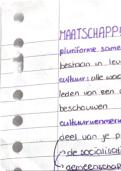 MAATSCHAPP
pluriforme same
bestaan in lev
cultuur: alle waa
leden van een
beschouwen
cultuurkenmerk
deel van je p
de socialisati
gemeenschap